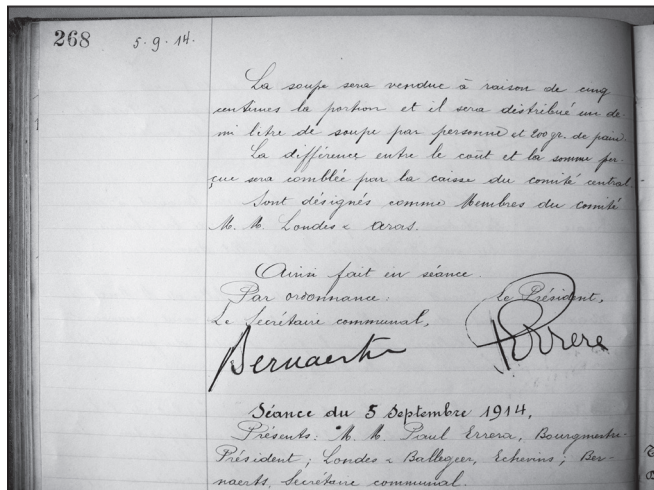 268 5.9.14.
La soupe sera vendue à raison de cinq
centimes la portion et il sera distribué un de-
mi litre de soupe par personne et 200 gr. de pain.
La différence entre le coût et la somme per-
çue sera comblée par la caisse du comité central.
Sont désignés comme Membres du comité
M. M. Londes & Aras.
Ainsi fait en séance.
Par ordonnance: le Président,
Le Secrétaire communal,
Bernaerts PErrera
Séance du 5 Septembre 1914,
Présents: M. M. Paul Errera, Bourgmestre-
Président; Londes & Ballegeer, Echevins; Ber-
naerts, Secrétaire communal.